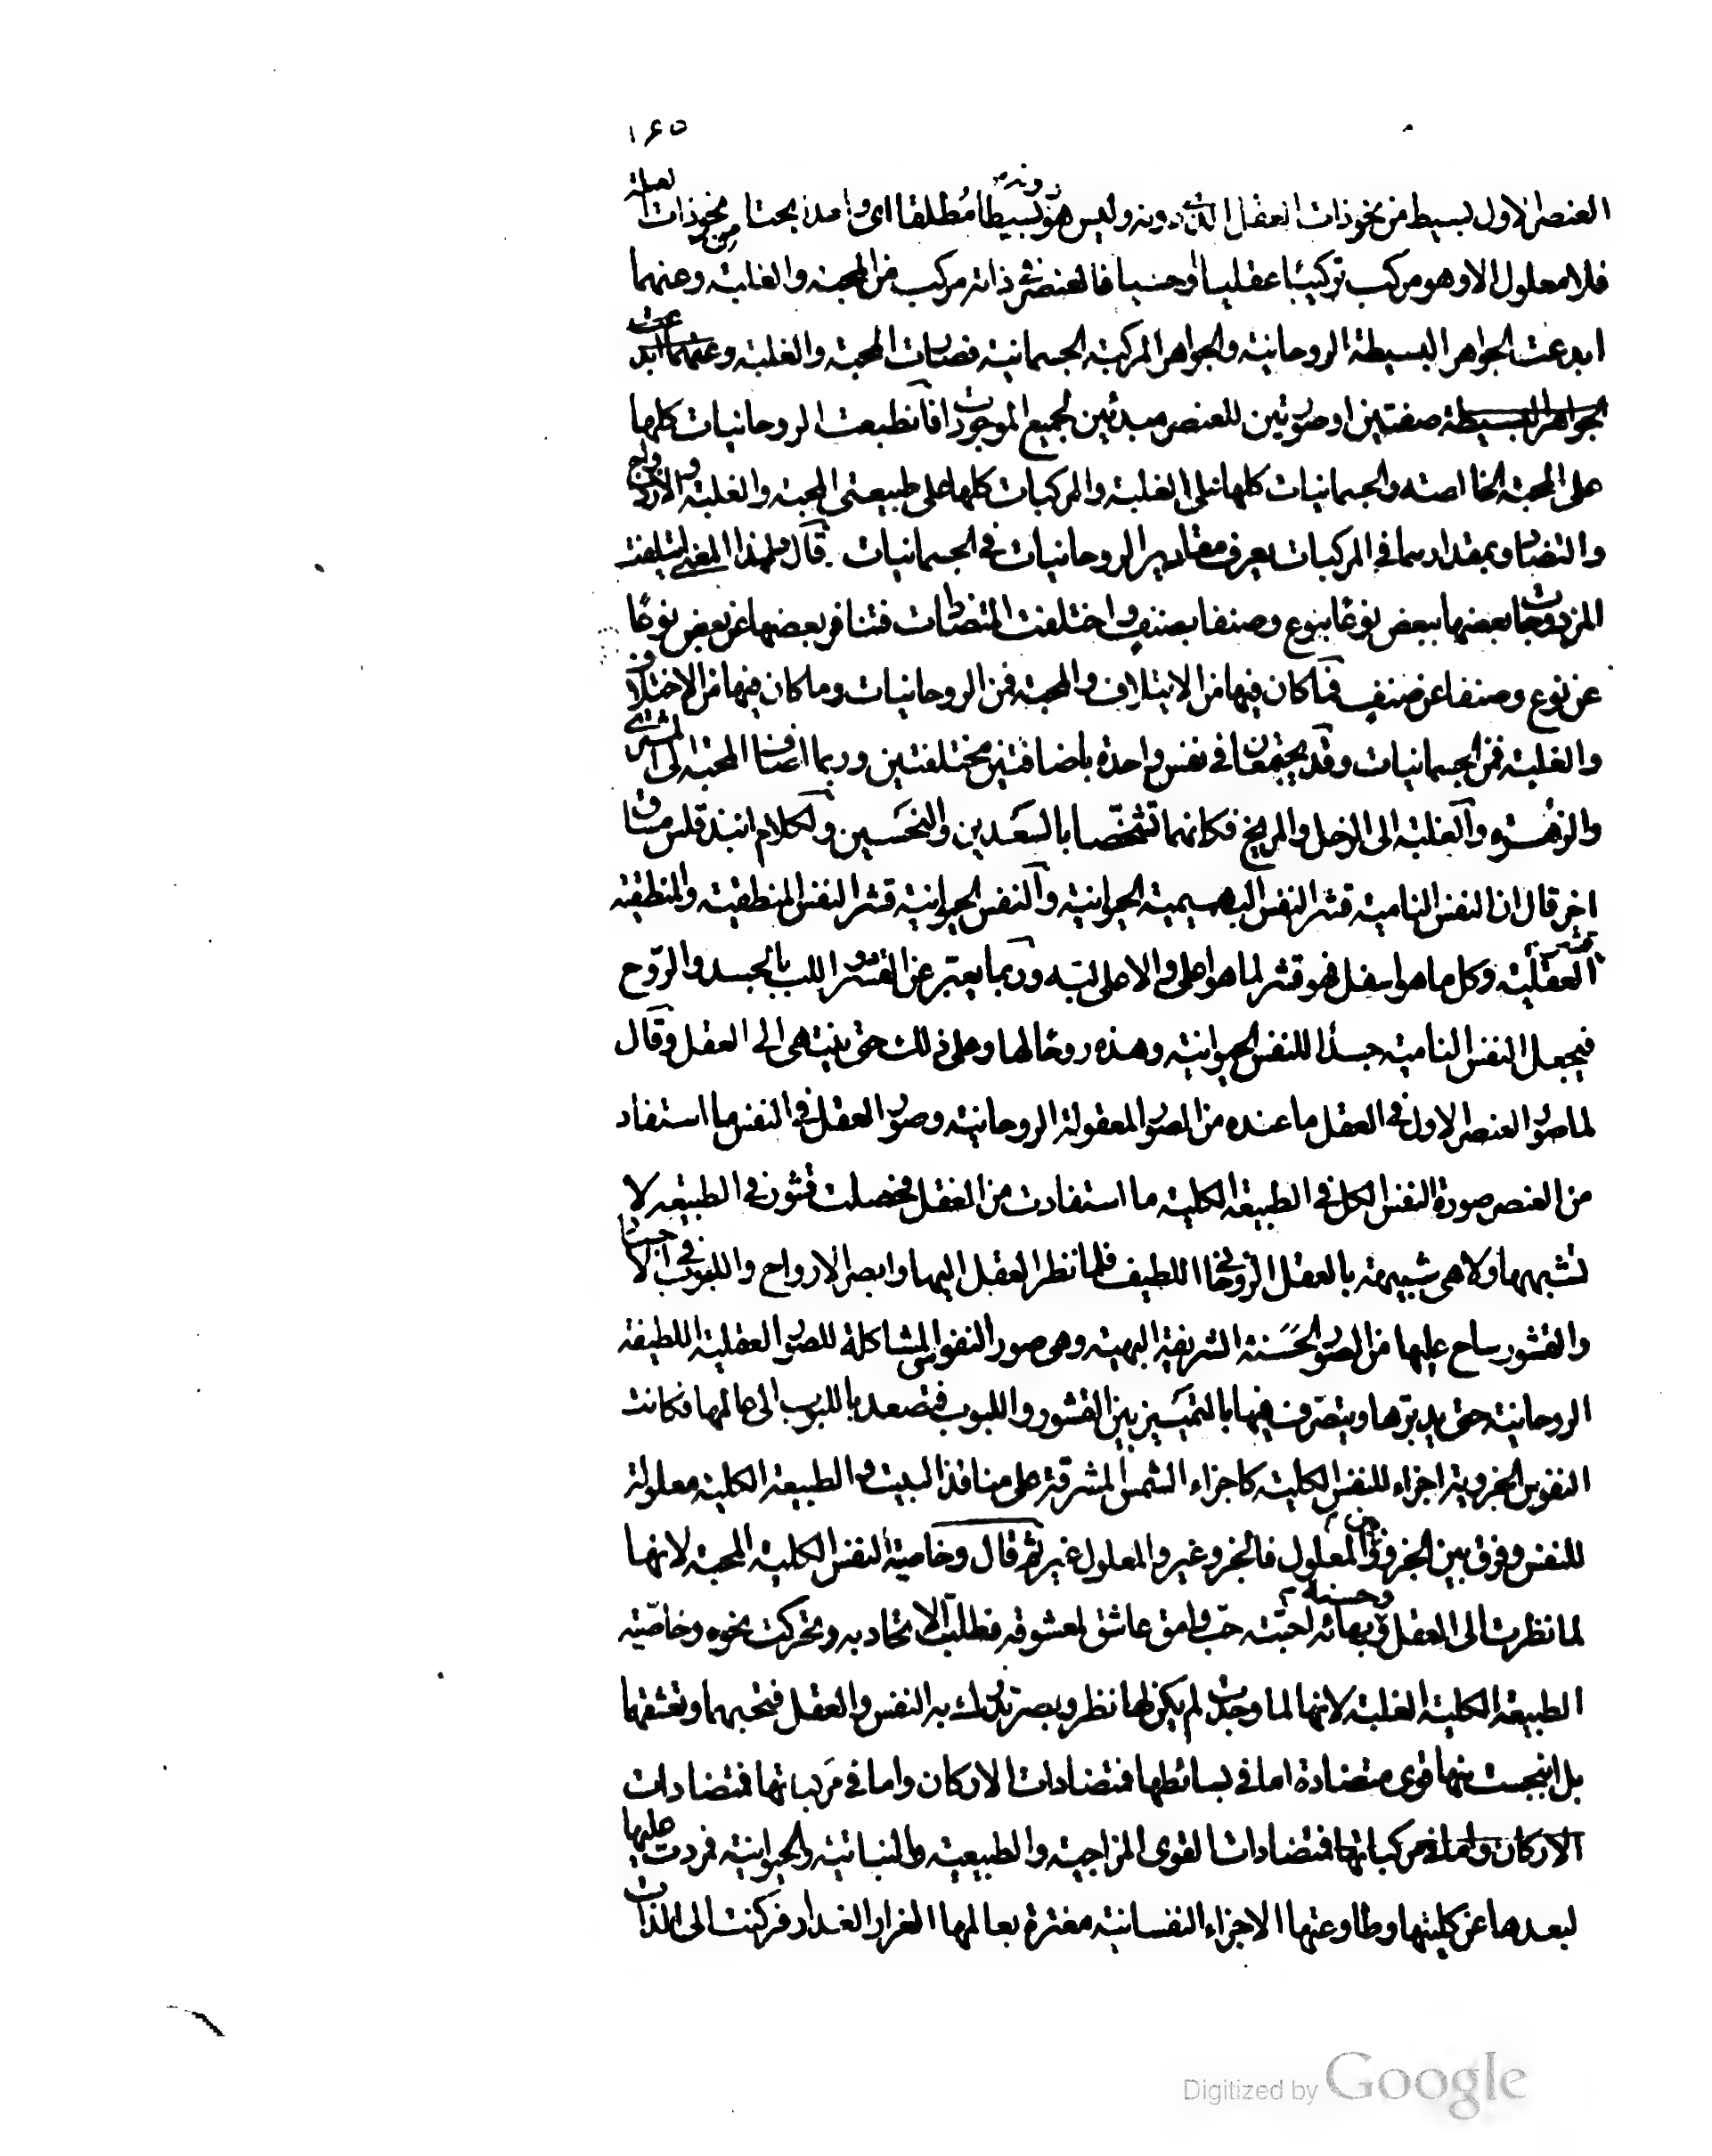 ١٦٥
العنصر الاول بسيط من نحو ذات العقل الذى دونه وليس هو دونه بسيطا مُطلقا اى واحدا بحتا من نحو ذات العلة
فلا معلول الا وهو مركب تركيبًا عقليا او حسيا فالعنصر فى ذاته مركب من المحبة والغلبة وعنهما
ابدعت الجواهر البسيطة الروحانية والجواهر المركبة الجسمانية فصارت المحبة والغلبة وعنهما ابدعت
الجواهر البسيطة صفتين او صورتين للعنصر مبدئين لجميع الموجودات فانطبعت الروحانيات كلها
على المحبة الخالصة والجسمانيات كلها على الغلبة والمركبات كلها على طبيعتى المحبة والغلبة والازدواج
والتضاد وبمقدارهما فى المركبات يعرف مقادير الروحانيات فى الجسمانيات . قال ولهذا المعنى ايتلفت
المزدوجات بعضها ببعض نوعًا بنوع وصنفا بصنف واختلفت المتضادات فتنافر بعضها عن بعض نوعًا
عن نوع وصنفا عن صنف فما كان فيها من الايتلاف والمحبة فمن الروحانيات وما كان فيها من الاختلاف
والغلبة فمن الجسمانيات وقد يجتمعان فى نفس واحدة باضافتين مختلفتين وربما اضاف المحبة الى المشترى
والزهرة والغلبة الى الزحل والمريخ فكانهما تشخّصا بالسَعدين والنحَسين ولكلام انبذقلس مساق
اخر قال ان النفس النامية قشر النفس البهيمية الحيوانية والنفس الحيوانية قشر النفس المنطقية والمنطقية
قشر العقلية وكل ما هو اسفل فهو قشر لما هو اعلى والاعلى لبّه وربما يعبّر عن القشر واللب بالجسد والرّوح
فيجعل النفس النامية جسدًا للنفس الحيوانية وهذه روحًا لها وعلى ذلك حتى ينتهى الى العقل وقال
لما صوّر العنصر الاول فى العقل ما عنده من الصور المعقولة الروحانية وصوّر العقل فى النفس ما استفاد
من العنصر صورة النفس الكل فى الطبيعة الكلية ما استفادت من العقل فحصلت قشور فى الطبيعة لا
تشبهها ولا هى شبيهة بالعقل الروحانى اللطيف فلما نظر العقل اليها وابصر الارواح واللبوب فى الاجساد
والقشور ساح عليها من الصور الحَسَنة الشريفة البهية وهى صور النفوس المشاكلة للصور العقلية اللطيفة
الروحانية حتى يدبّرها ويتصرف فيها بالتميَيز بين القشور واللبوب فتصعد باللبوب الى عالمها فكانت
النفوس الجزوية اجزاء للنفس الكلية كاجزاء الشمس المشرقة على منافذ البيت والطبيعة الكلية معلولة
للنفس وفرق بين الجزو وبين المعلول فالجزو غير والمعلول غير ثم قال وخاصية النفس الكلية المحبة لانها
لما نظرت الى العقل وحسنه وبهائه احبّته حبّ وامق عاشق لمعشوقه فطلبت الاتحاد به وتحركت نحوه وخاصّية
الطبيعة الكلية الغلبة لانها لما وجدت لم يكن لها نظر وبصر تدرك به النفس والعقل فتحبهما وتعشقهما
بل انبجست منها قوى متضادة اما فى بسائطها فتضادات الاركان واما فى مركباتها فتضادات
الاركان واما فى مركباتها فتضادات القوى المزاجية والطبيعية والنباتية والحيوانية فمردت عليها
لبعدها عن كليتها وطاوعتها الاجزاء النفسانية مغترة بعالمها الغرار الغدار فركنت الى اللذات
Digitized by Google